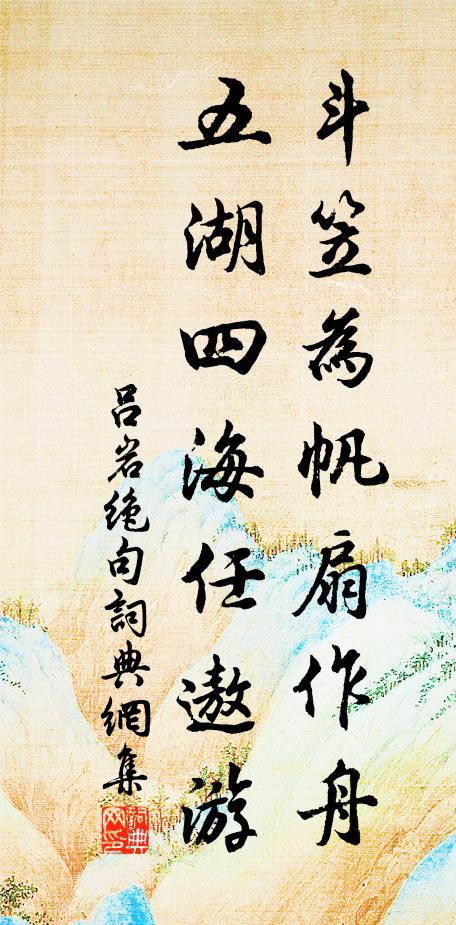 斗笠為帆扇作舟
五湖四海任遨游
吕岩绝句詞典網集
詞典